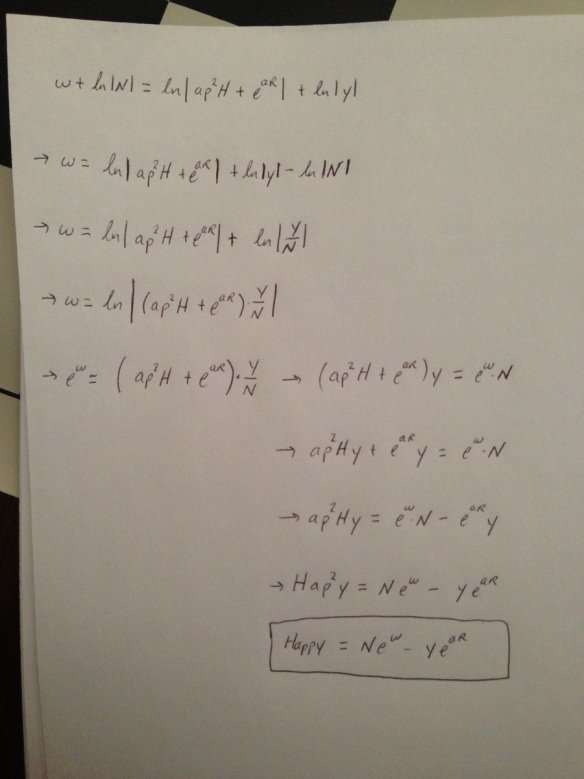 ω + ln|N| = ln|ap²H + e^{aR}| + ln|y|
→ ω = ln|ap²H + e^{aR}| + ln|y| - ln|N|
→ ω = ln|ap²H + e^{aR}| + ln|Y/N|
→ ω = ln|(ap²H + e^{aR})·Y/N|
→ e^ω = (ap²H + e^{aR})·Y/N → (ap²H + e^{aR})y = e^ω·N
→ ap²Hy + e^{aR}y = e^ω·N
→ ap²Hy = e^ω·N - e^{aR}y
→ Hap²y = Ne^ω - ye^{aR}
Happy = Ne^ω - ye^{aR}